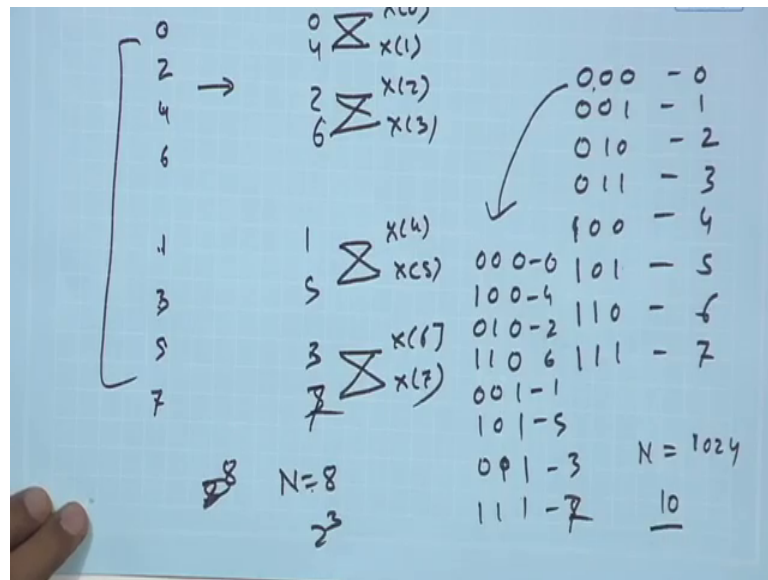 0
2
4
6
1
3
5
7
→
0
4
x(0)
x(1)
2
6
x(2)
x(3)
1
5
x(4)
x(5)
3
7
x(6)
x(7)
0 0 0 - 0
0 0 1 - 1
0 1 0 - 2
0 1 1 - 3
1 0 0 - 4
1 0 1 - 5
1 1 0 - 6
1 1 1 - 7
0 0 0 - 0
1 0 0 - 4
0 1 0 - 2
1 1 0 6
0 0 1 - 1
1 0 1 - 5
0 1 1 - 3
1 1 1 - 7
8
N = 8
2³
N = 1024
10